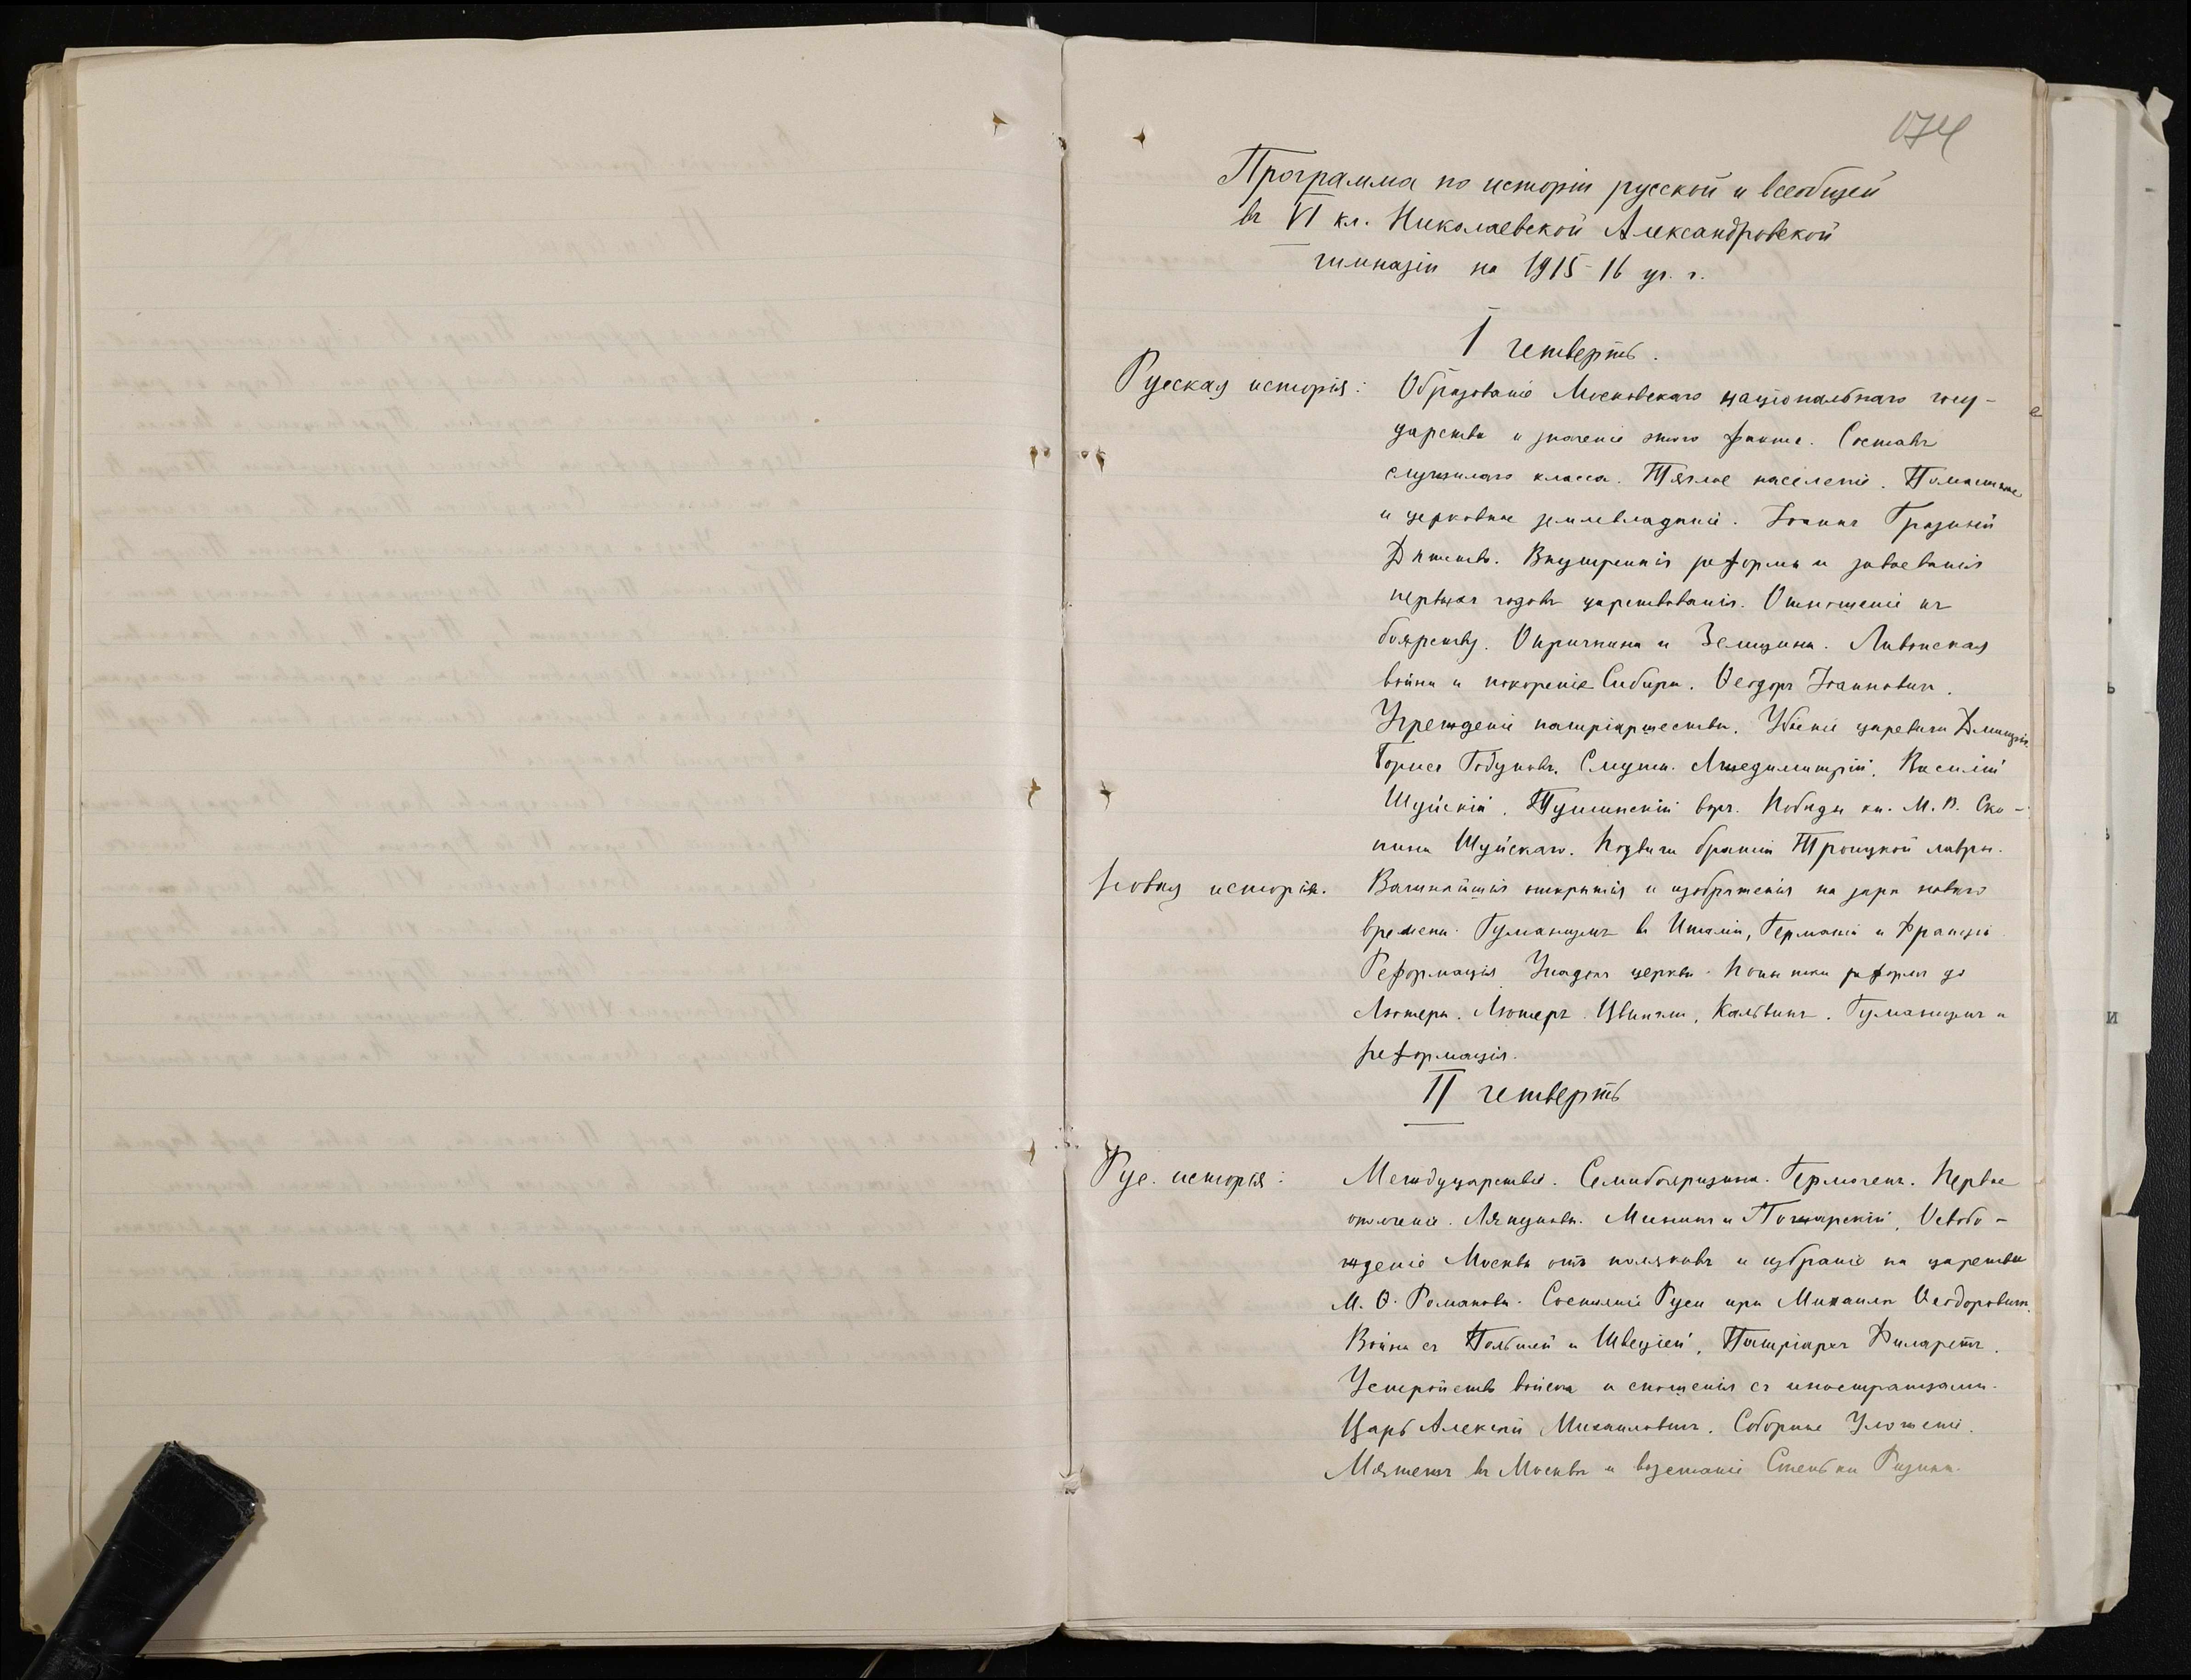 174
Программа по исторіи русской и всеобщей
въ VI кл. Николаевской Александровской
гимназіи на 1915-16 уч. г.
I четверть.
Русская исторія: Образованіе Московскаго національнаго госу-
дарства и значеніе этого факта. Составъ
служилаго класса. Тяглое населеніе. Помѣстное
и церковное землевладѣніе. Іоаннъ Грозный
Дѣтство. Внутреннія реформы и завоеванія
первыхъ годовъ царствованія. Отношеніе къ
боярству. Опричнина и Земщина. Ливонская
война и покореніе Сибири. Ѳеодоръ Іоанновичъ.
Учрежденіе патріаршества. Убіеніе царевича Дмитрія.
Борисъ Годуновъ. Смута. Лжедимитрій. Василій
Шуйскій. Тушинскій воръ. Побѣды кн. М. В. Ско-
пина Шуйскаго. Подвиги братіи Троицкой лавры.
Новая исторія. Важнѣйшія открытія и изобрѣтенія на зарѣ новаго
времени. Гуманизмъ въ Италіи, Германіи и Франціи.
Реформація. Упадокъ церкви. Попытки реформъ до
Лютера. Лютеръ. Цвингли, Кальвинъ. Гуманизмъ и
реформація.
II четверть
Рус. исторія: Междуцарствіе. Семибоярщина. Гермогенъ. Первое
ополченіе. Ляпуновъ. Мининъ и Пожарскій. Освобо-
жденіе Москвы отъ поляковъ и избраніе на царство
М. Ѳ. Романова. Состояніе Руси при Михаилѣ Ѳеодоровичѣ.
Война съ Польшей и Швеціей. Патріархъ Филаретъ.
Устройство войска и сношенія съ иностранцами.
Царь Алексѣй Михаиловичъ. Соборное Уложеніе.
Мятежъ въ Москвѣ и возстаніе Стеньки Разина.